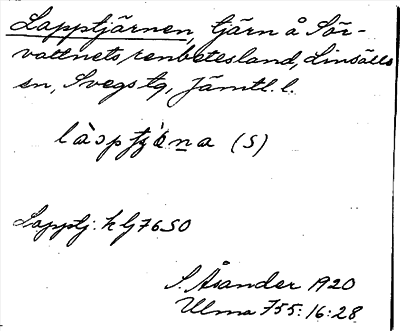 Lapptjärnen, tjärn å Sör-
vattnets renbetesland, Linsälls
sn, Svegs tg, Jämtl. l.
(S)
Lapptj: k lj 76 50
S. Åsander 1920
Ulma 755:16:28